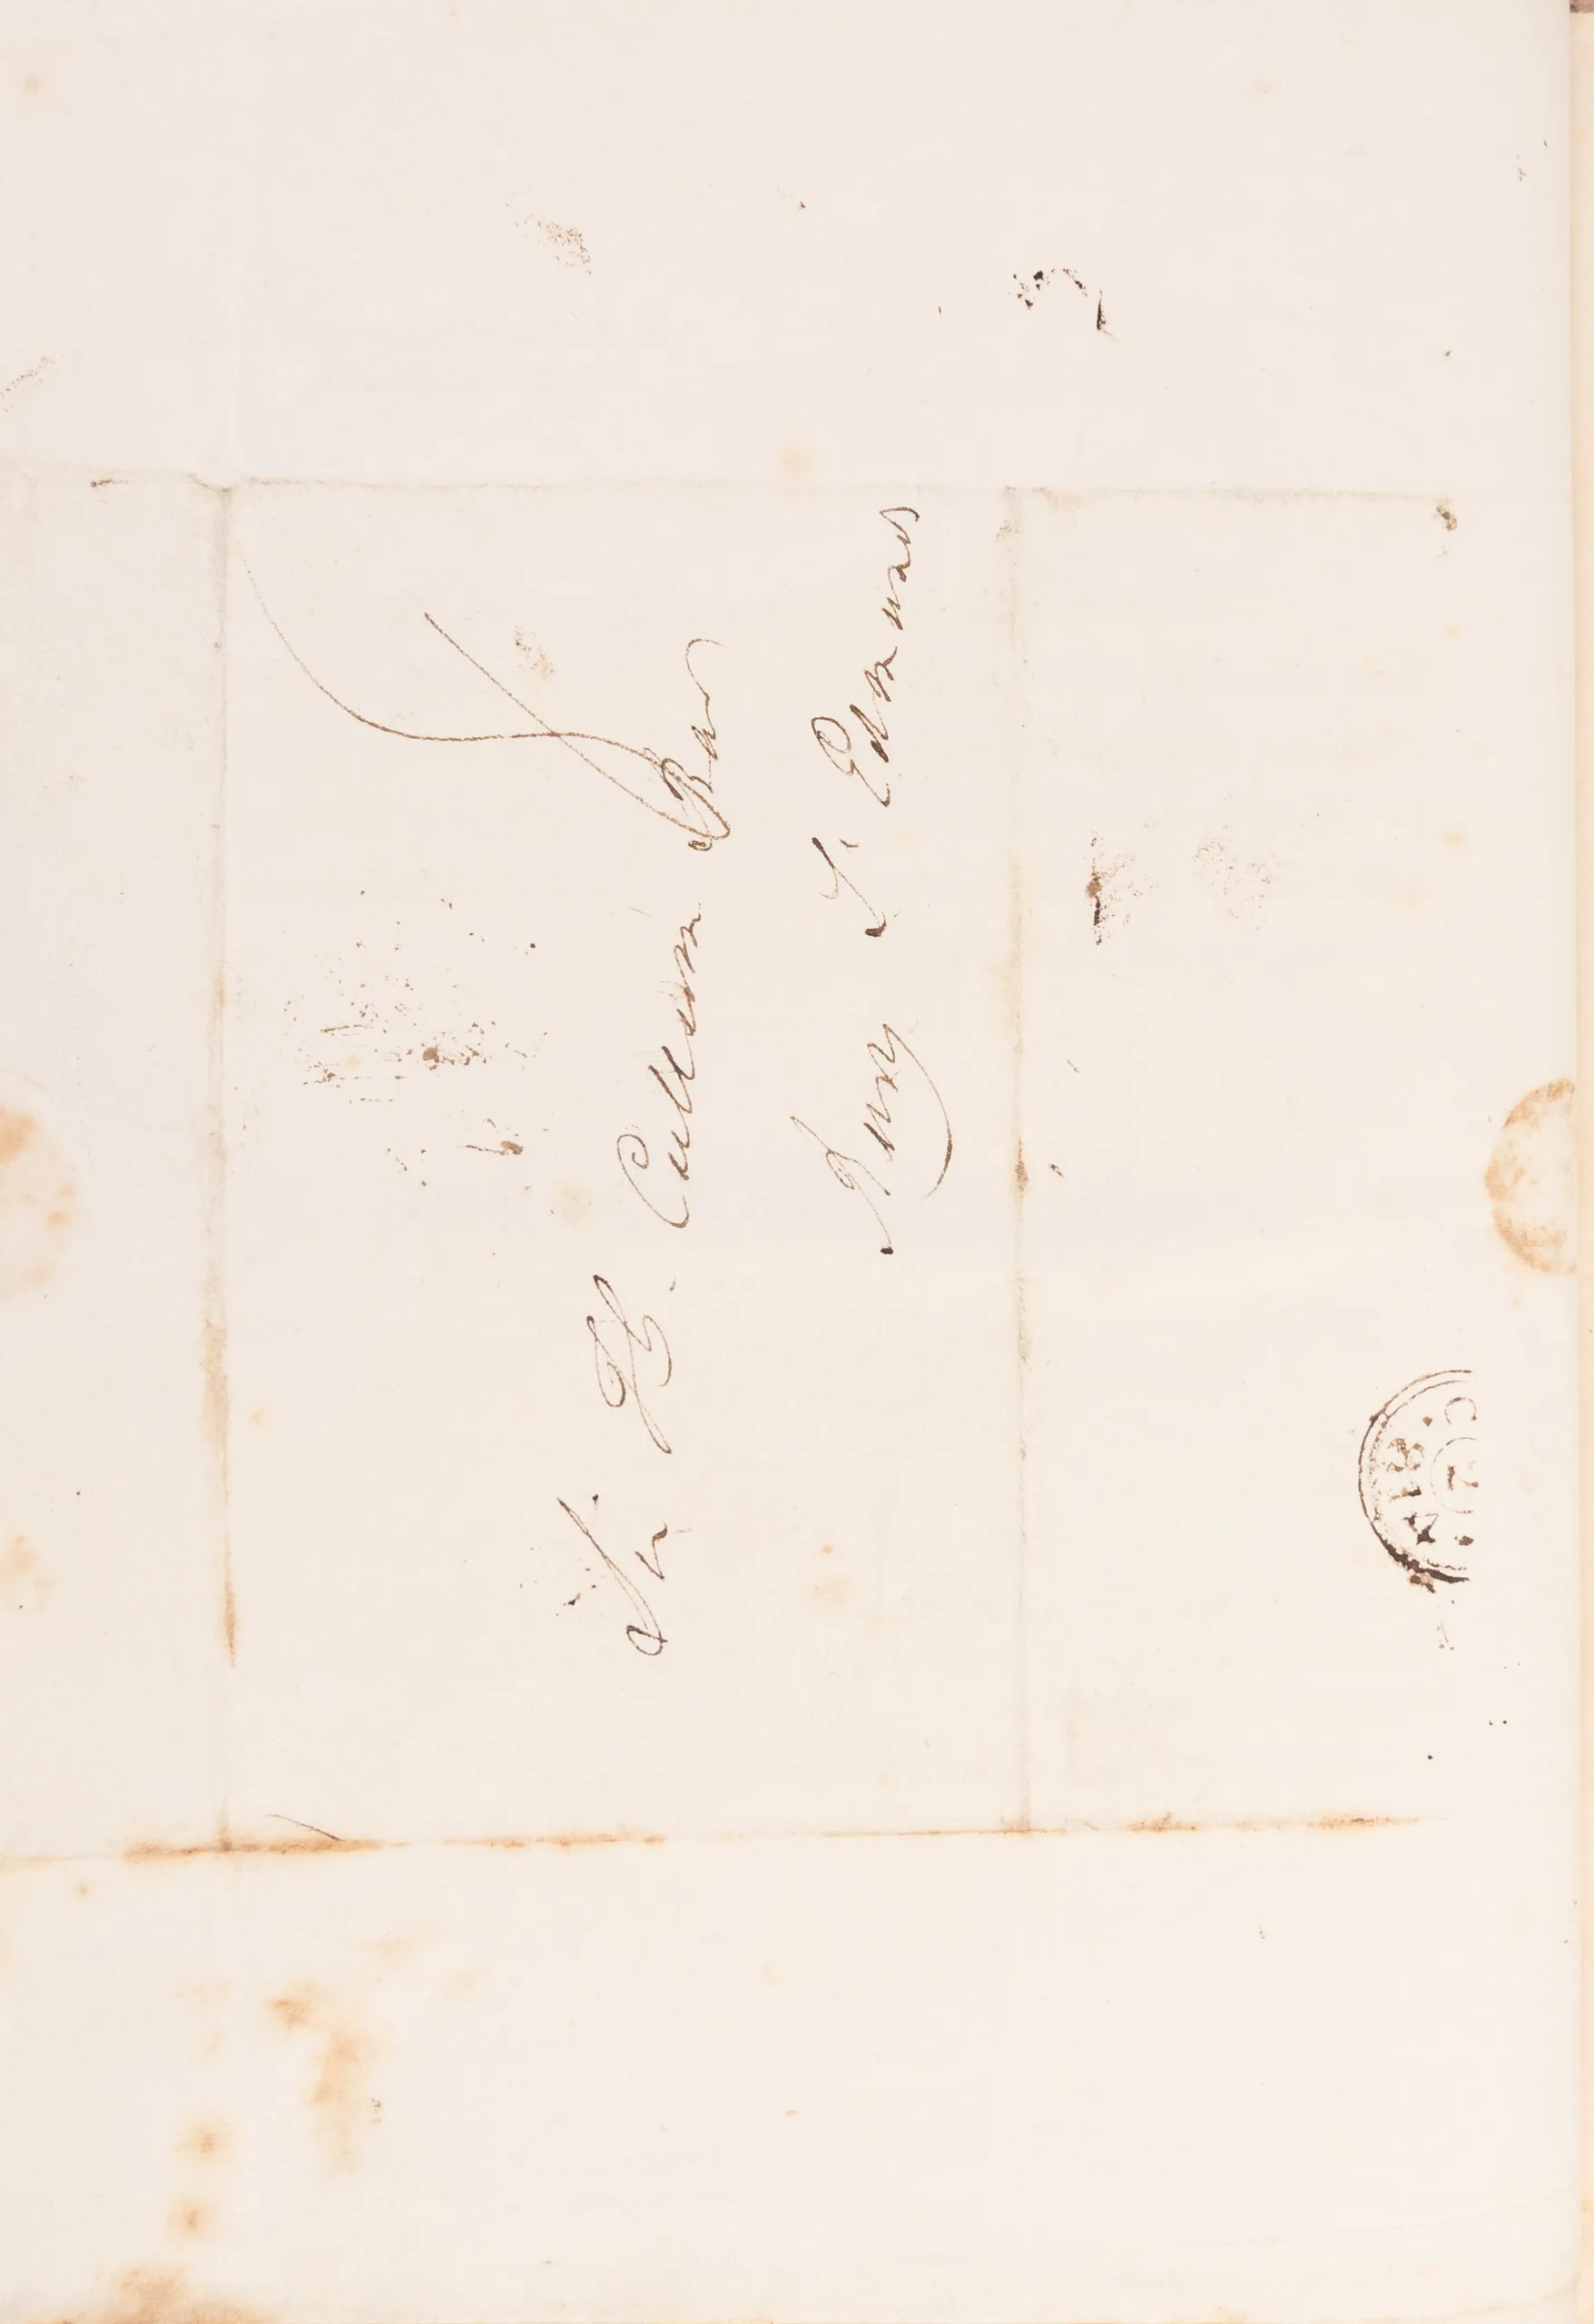 Sir H. Cullum Bart
Bury St Edmunds